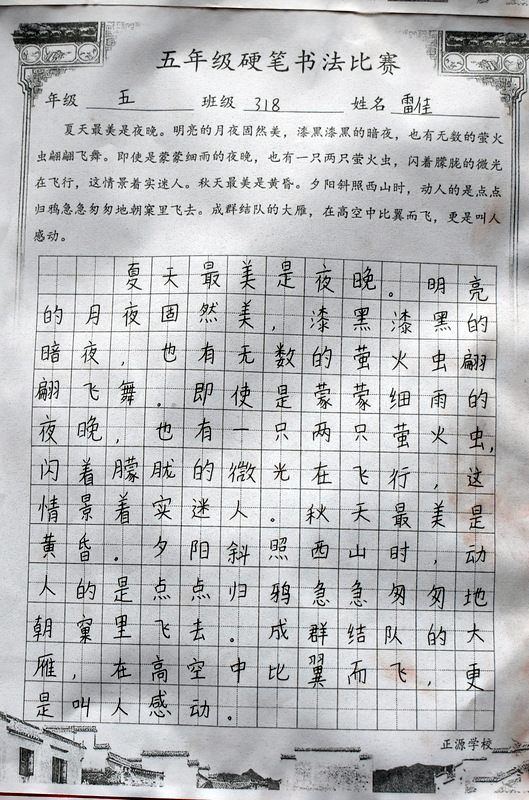 五年级硬笔书法比赛
年级 五 班级 318 姓名 雷佳
夏天最美是夜晚。明亮的月夜固然美，漆黑漆黑的暗夜，也有无数的萤火
虫翩翩飞舞。即使是蒙蒙细雨的夜晚，也有一只两只萤火虫，闪着朦胧的微光
在飞行，这情景着实迷人。秋天最美是黄昏。夕阳斜照西山时，动人的是点点
归鸦急急匆匆地朝窠里飞去。成群结队的大雁，在高空中比翼而飞，更是叫人
感动。
夏天最美是夜晚。明亮
的月夜固然美，漆黑漆黑的
暗夜，也有无数的萤火虫翩
翩飞舞。即使是蒙蒙细雨的
夜晚，也有一只两只萤火虫，
闪着朦胧的微光在飞行，这
情景着实迷人。秋天最美是
黄昏。夕阳斜照西山时，动
人的是点点归鸦急急匆匆地
朝窠里飞去。成群结队的大
雁，在高空中比翼而飞，更
是叫人感动。
正源学校